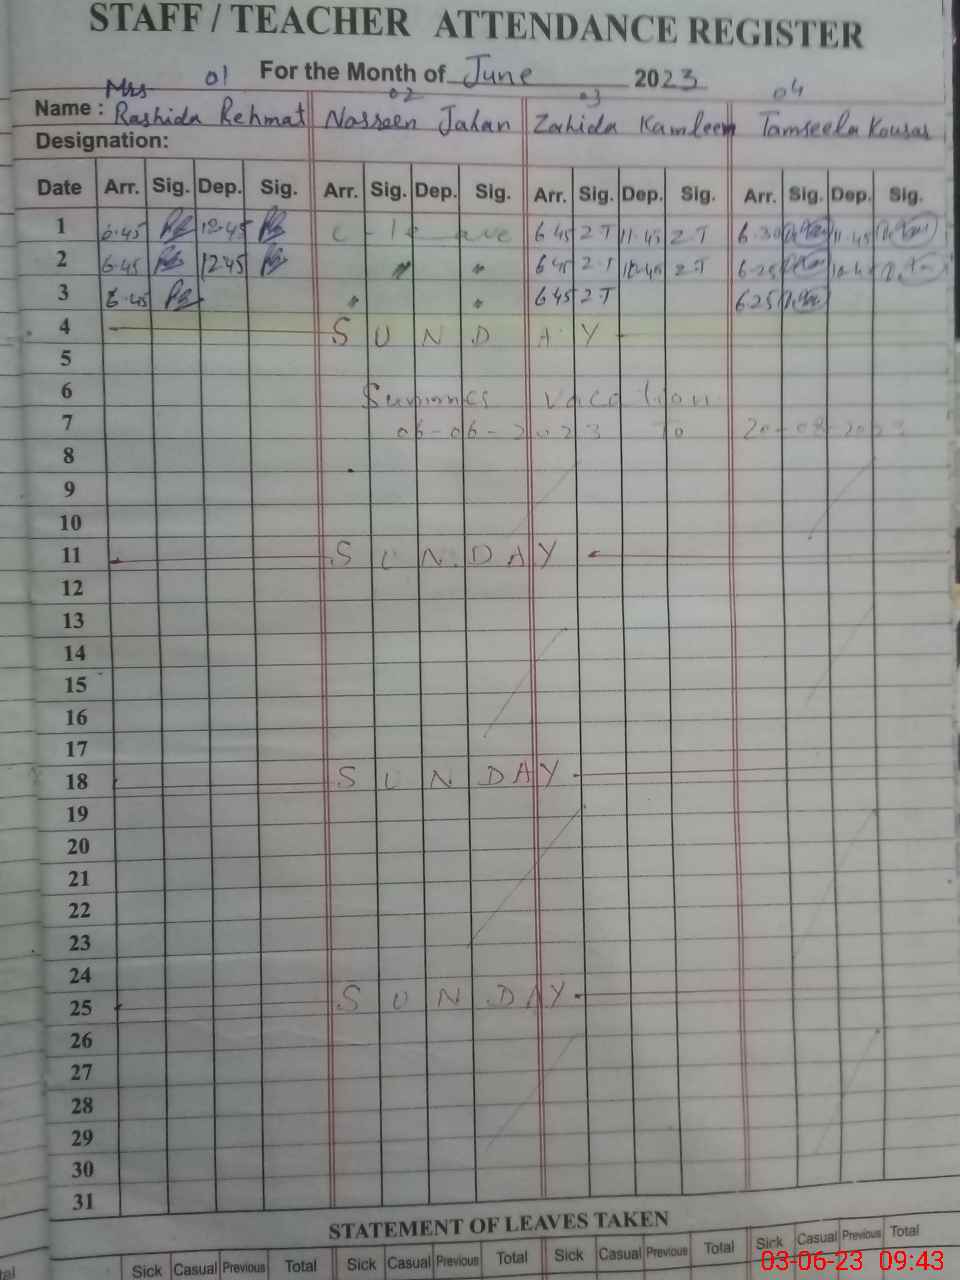 STAFF / TEACHER ATTENDANCE REGISTER
For the Month of June 2023
Mrs 01 02 03 04
Name : Rashida Rehmat Nasreen Jahan Zahida Kamleem Tamseela Kousar
Designation:
Date Arr. Sig. Dep. Sig. Arr. Sig. Dep. Sig. Arr. Sig. Dep. Sig. Arr. Sig. Dep. Sig.
1 6.45 12.45 c - leave 6 45 Z T 11.45 Z T 6.30 11.45
2 6.45 12 45 " " 6 45 Z T 12.45 Z T 6.25
3 6.45 " " 6 45 Z T 6.25
4 SUNDAY
5
6 Summer vacation
7 06-06-2023 To 20-08-2023
8
9
10
11 SUNDAY
12
13
14
15
16
17
18 SUNDAY
19
20
21
22
23
24
25 SUNDAY
26
27
28
29
30
31
STATEMENT OF LEAVES TAKEN
Sick Casual Previous Total Sick Casual Previous Total Sick Casual Previous Total Sick Casual Previous Total
03-06-23 09:43